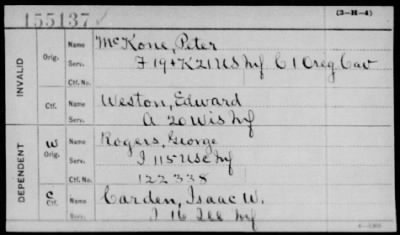 155137 (3-H-4)
INVALID
Orig. Name McKone, Peter
Serv. F 19 + K 21 US Inf C 1 Oreg Cav
Ctf. No.
Ctf. Name Weston, Edward
Serv. A 20 Wis Inf
DEPENDENT
W Orig. Name Rogers, George
Serv. I 115 USC Inf
Ctf. No. 122338
C Ctf. Name Carden, Isaac W.
Serv. I 16 Ill Inf